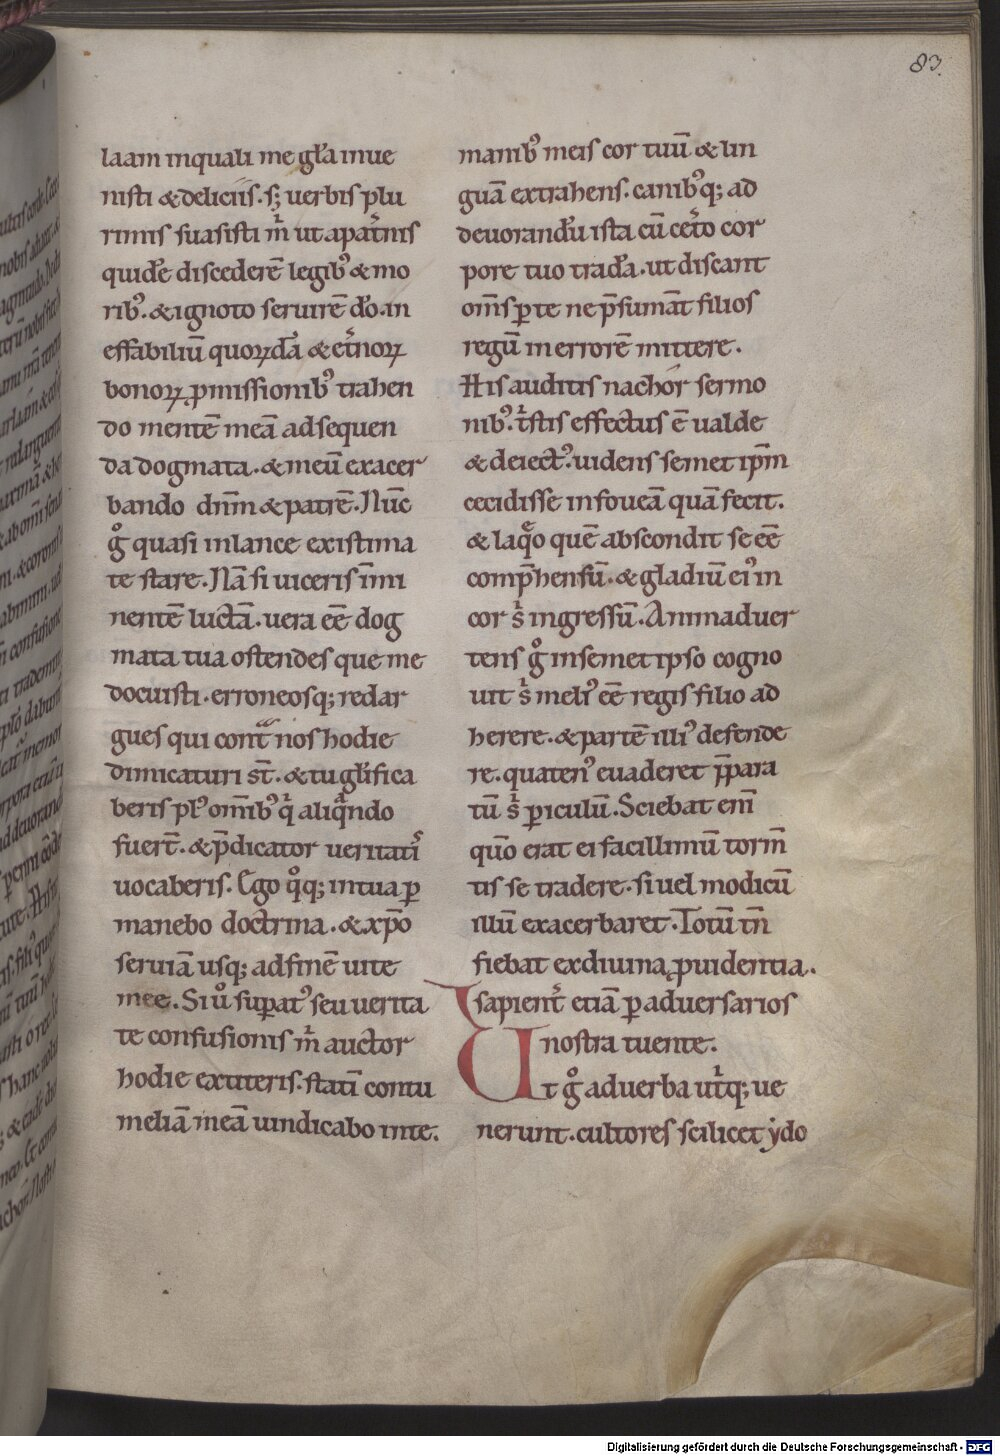 83.
laam inquali me gl̄a inue
nisti & deliciis. s; uerbis plu
rimis suasisti m̄ ut apat̄nis
quidē discederē legib' & mo
rib'. & ignoto seruirē dō. in
effabiliū quorꝝdā & et̄norꝝ
bonorꝝ ꝓmissionib' trahen
do mentē meā adsequen
da dogmata. & meū exacer
bando dnm̄ & patrē. Nūc
g̊ quasi inlance existima
te stare. Nā si uiceris īmi
nentē luctā. uera eē dog
mata tua ostendes que me
docuisti. erroneosq; redar
gues qui cont̄ nos hodie
dimicaturi st̄. & tu gl̄ifica
beris pl' om̄ib' q̄ aliq̄ndo
fuert̄. & p̄dicator ueritati'
uocaberis. Ego q̊q; intua ꝑ
manebo doctrina. & xp̄o
seruiā usq; adfinē uite
mee. Si ů suꝑat' seu uerita
te confusionis m̄ auctor
hodie extiteris. statī contu
meliā meā uindicabo inte.
manib' meis cor tuū & lin
guā extrahens. canib'q; ad
deuorandū ista cū cet̄o cor
pore tuo tradā. ut discant
om̄s ꝑte ne p̄sumāt filios
regū inerrorē mittere.
His auditis nachor sermo
nib'. t̄stis effectus ē ualde
& deiect'. uidens semet ipm̄
cecidisse infoueā quā fecit.
& laq̄o quē abscondit se eē
comp̄hensū. & gladiū ei' in
cor s̄ ingressū. Animaduer
tens g̊ insemet ipso cogno
uit s̄ meli' eē regis filio ad
herere. & partē illi' defende
re. quaten' euaderet p̄para
tū s̄ ꝑiculū. Sciebat eni̅
quō erat ei facillimū torm̄
tis se tradere. si uel modicū
illū exacerbaret. Totū tn̄
fiebat exdiuina ꝓuidentia.
sapient̄ etiā ꝑ aduersarios
nostra tuente.
Ut g̊ aduerba ut̄q; ue
nerunt. cultores scilicet ẏdo
Digitalisierung gefördert durch die Deutsche Forschungsgemeinschaft - DFG